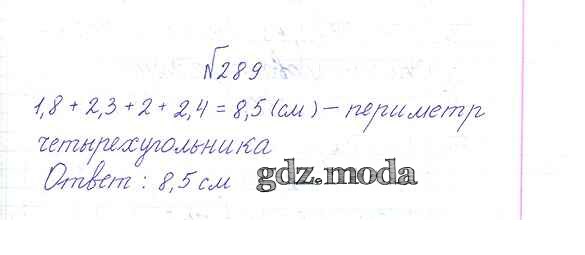 №289
1,8 + 2,3 + 2 + 2,4 = 8,5 (см) – периметр
четырехугольника
Ответ : 8,5 см gdz.moda